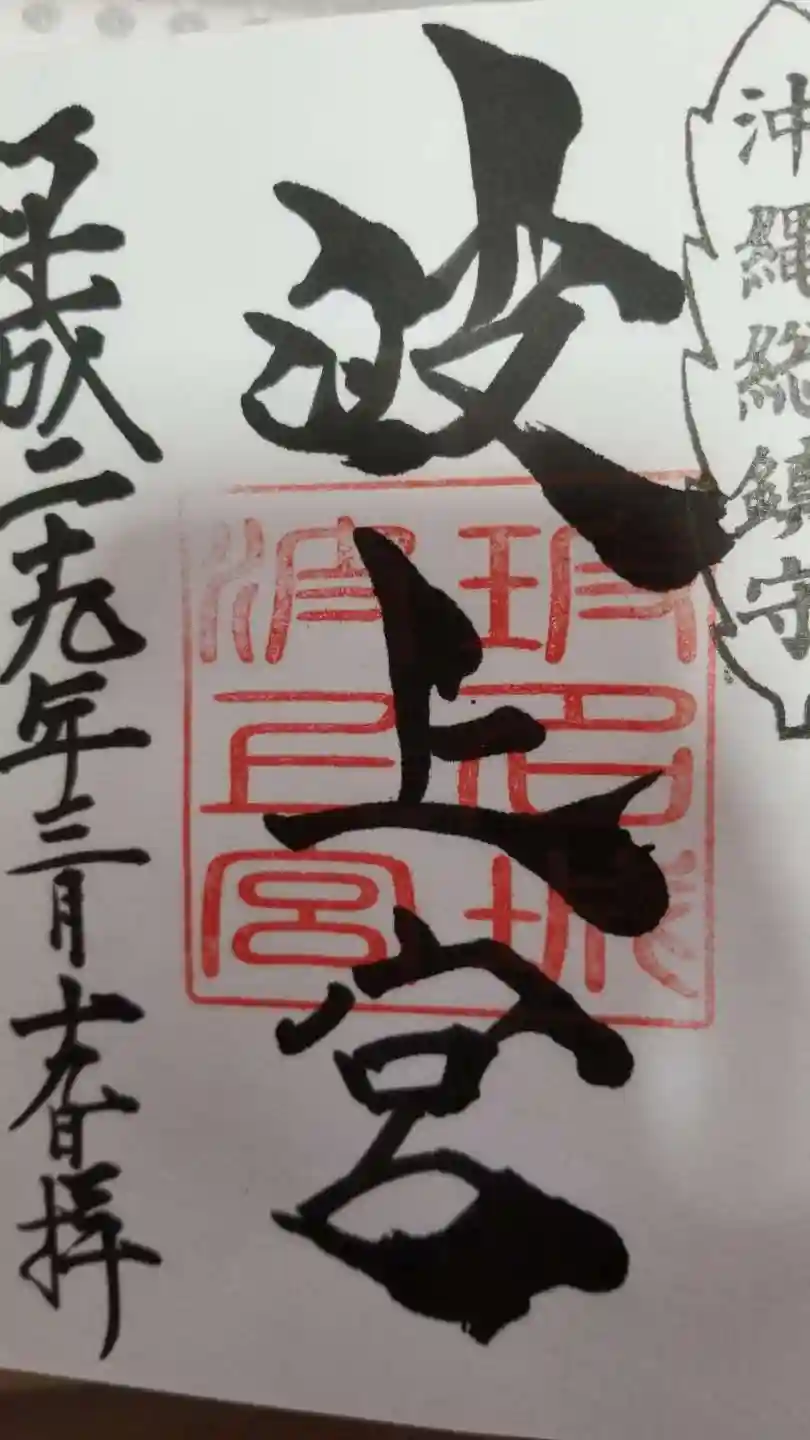 沖縄総鎮守
波上宮
平成二十九年三月十九日拝
球陽
波上宮